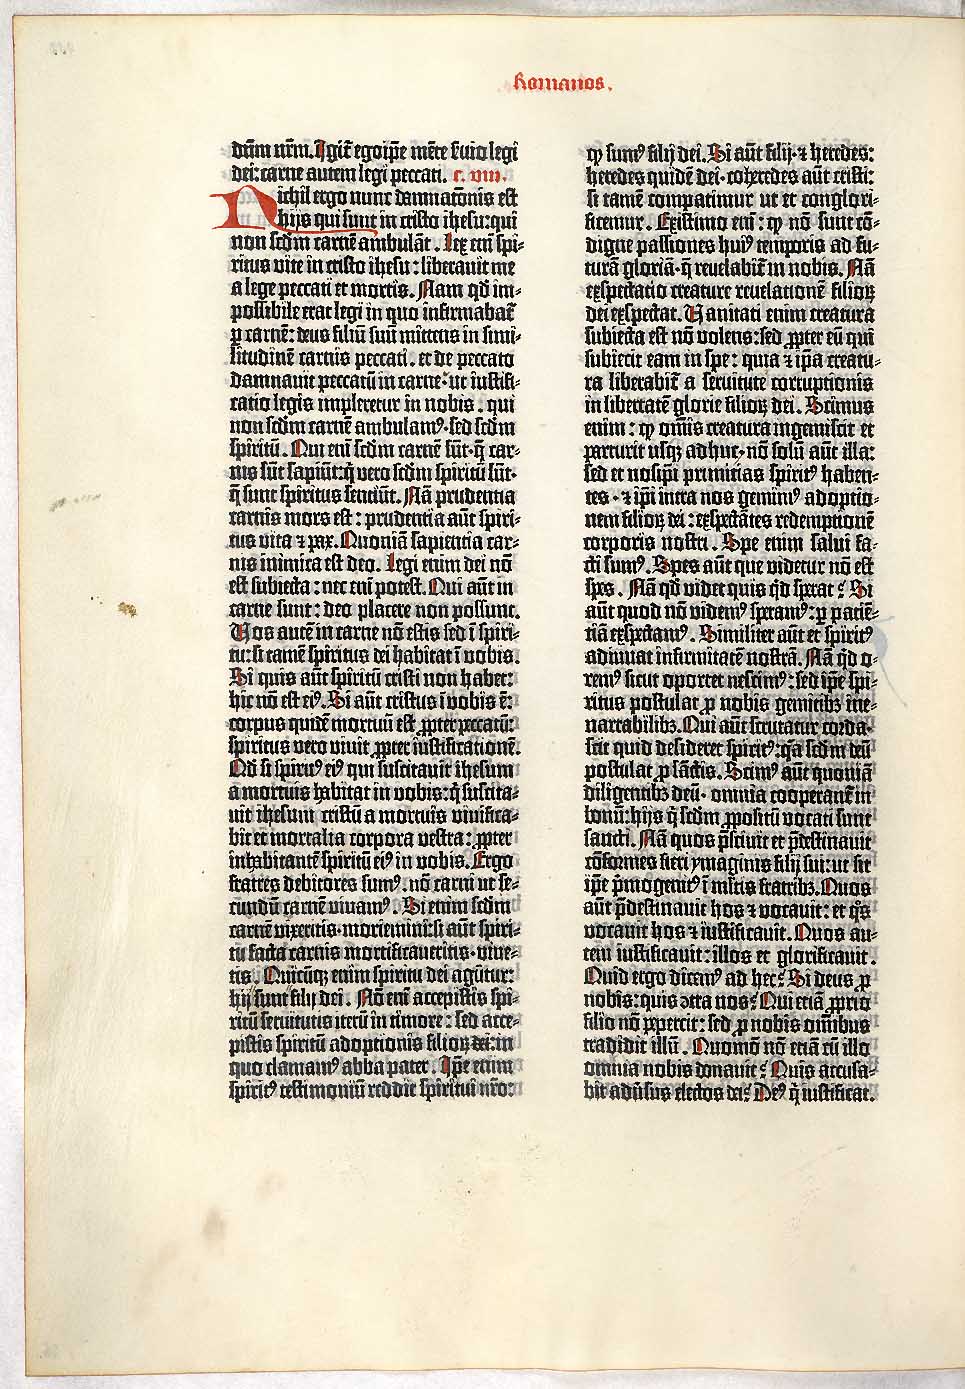 Romanos.
dūm nr̄m. Igit̄ egoip̄e mēte s̄uio legi
dei: carne autem legi peccati. c. viii.
Nichil ergo nunc damnatōnis est
hijs qui sunt in cristo ihesu: qui
non scd̄m carnē ambulāt. Lex enī spi-
ritus vite in cristo ihesu: liberauit me
a lege peccati et mortis. Nam qd̄ im-
possibile erat legi in quo infirmabat̄
ꝑ carnē: deus filiū suū mittens in simi-
litudinē carnis peccati. et de peccato
damnauit peccatū in carne· ut iustifi-
catio legis impleretur in nobis. qui
non scd̄m carnē ambulamꝰ. sed scd̄m
spiritū. Qui enī scd̄m carnē sūt· q̄ car-
nis sūt sapiūt: q̄ vero scd̄m spiritū sūt·
q̄ sunt spiritus sentiūt. Nā prudentia
carnis mors est: prudentia aūt spiri-
tus vita ⁊ pax. Quoniā sapientia car-
nis inimica est deo. Legi enim dei nō
est subiecta: nec enī potest. Qui aūt in
carne sunt: deo placere non possunt.
Vos autē in carne nō estis sed ī spiri-
tu: si tamē spiritus dei habitat ī vobis.
Si quis aūt spiritū cristi non habet:
hic nō est eiꝰ. Si aūt cristus ī vobis ē:
corpus quidē mortuū est ꝓpter peccatū:
spiritus vero viuit ꝓpter iustificationē.
Qd̄ si spiritꝰ eiꝰ qui suscitauit ihesum
a mortuis habitat in vobis: q̄ suscita-
uit ihesum cristū a mortuis viuifica-
bit et mortalia corpora vestra: ꝓpter
inhabitantē spiritū eiꝰ in vobis. Ergo
fratres debitores sumꝰ. nō carni ut se-
cundū carnē viuamꝰ. Si enim scd̄m
carnē vixeritis· moriemini: si aūt spiri-
tu facta carnis mortificaueritis· viue-
tis. Quicūqꝫ enim spiritu dei agūtur:
hij sunt filij dei. Nō enī accepistis spi-
ritū seruitutis iterū in timore: sed acce-
pistis spiritū adoptionis filioꝝ dei: in
quo clamamꝰ abba pater. Ip̄e enim
spiritꝰ testimoniū reddit spiritui nr̄o:
ꝙ sumꝰ filij dei. Si aūt filij· ⁊ heredes:
heredes quidē dei· coheredes aūt cristi:
si tamē compatimur ut et conglori-
ficemur. Existimo enī: ꝙ nō sunt cō-
digne passiones huiꝰ temporis ad fu-
turā gloriā· q̄ reuelabit̄ in nobis. Nā
exspectatio creature reuelationē filioꝝ
dei exspectat. Vanitati enim creatura
subiecta est nō volens: sed ꝓpter eū qui
subiecit eam in spe: quia ⁊ ip̄a creatu-
ra liberabit̄ a seruitute corruptionis
in libertatē glorie filioꝝ dei. Scimus
enim: ꝙ om̄is creatura ingemiscit et
parturit usqꝫ adhuc· nō solū aūt illa:
sed et nosip̄i primitias spiritꝰ haben-
tes· ⁊ ip̄i intra nos gemimꝰ adoptio-
nem filioꝝ dei: exspectātes redemptionē
corporis nostri. Spe enim salui fa-
cti sumꝰ. Spes aūt que videtur nō est
spes. Nā qd̄ videt quis qd̄ sperat? Si
aūt quod nō videmꝰ speramꝰ: ꝑ patiē-
tiā exspectamꝰ. Similiter aūt et spiritꝰ
adiuuat infirmitatē nostrā. Nā qd̄ o-
remꝰ sicut oportet nescimꝰ: sed ip̄e spi-
ritus postulat ꝓ nobis gemitibꝫ ine-
narrabilibꝫ. Qui aūt scrutatur corda·
scit quid desideret spiritꝰ: q̄a scd̄m deū
postulat ꝓ sāctis. Scimꝰ aūt quoniā
diligentibꝫ deū· omnia cooperant̄ in
bonū: hijs q̄ scd̄m ꝓpositū vocati sunt
sancti. Nā quos p̄sciuit et p̄destinauit
cōformes fieri ymaginis filij sui: ut sit
ip̄e p̄mogenitꝰ ī ml̄tis fratribꝫ. Quos
aūt p̄destinauit hos ⁊ vocauit: et q̊s
vocauit hos ⁊ iustificauit. Quos au-
tem iustificauit: illos et glorificauit.
Quid ergo dicemꝰ ad hec? Si deus ꝓ
nobis: quis ꝯtra nos? Qui etiā ꝓprio
filio nō pepercit: sed ꝓ nobis omībus
tradidit illū. Quomō nō etiā cū illo
omnia nobis donauit? Quis accusa-
bit adūsus electos dei? Deꝰ q̄ iustificat.